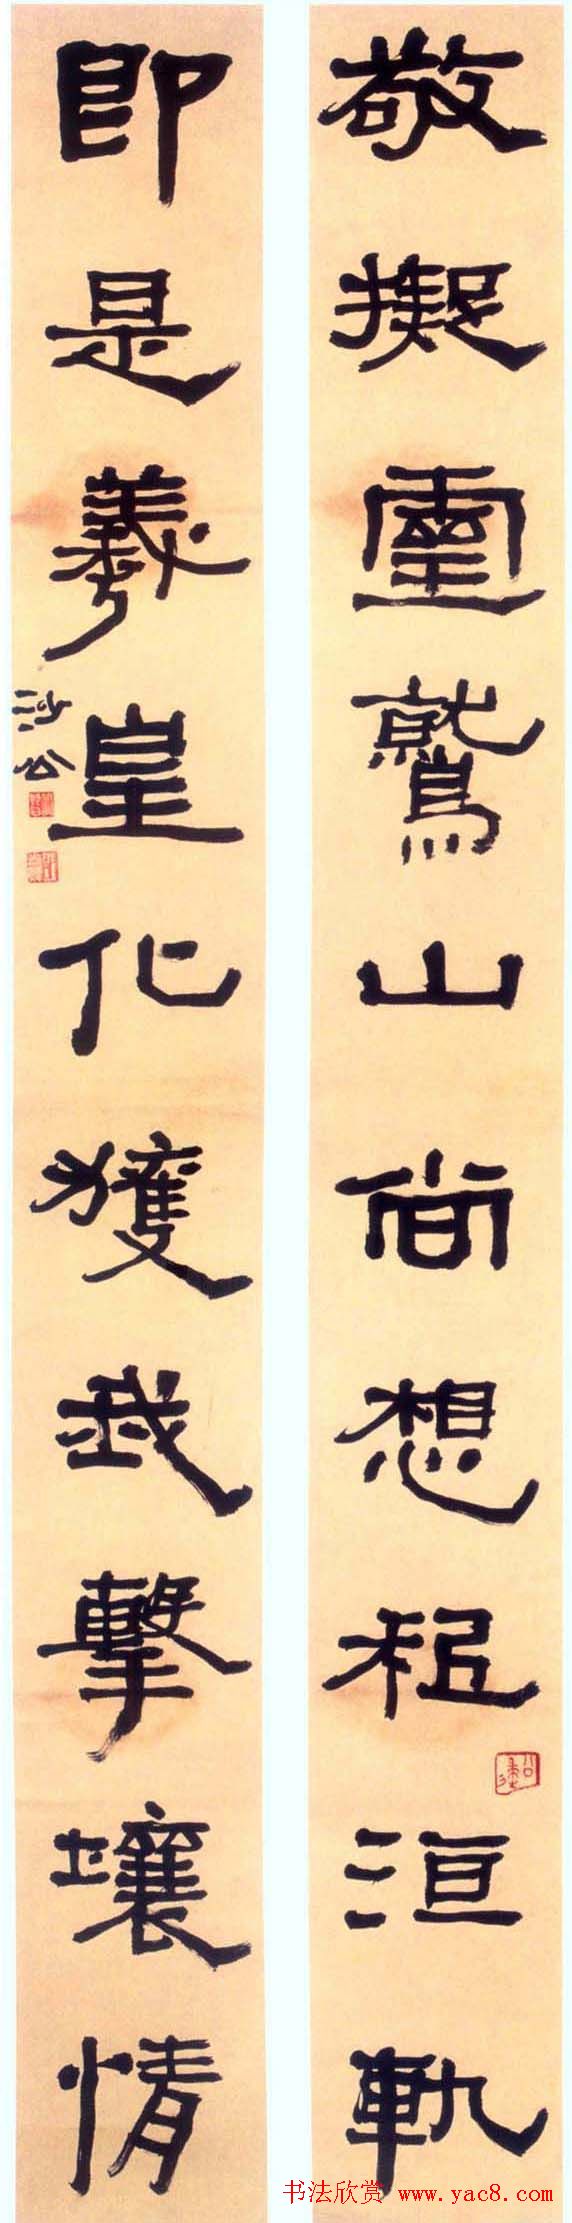 敬擬靈鷲山尚想祇洹軌
即是羲皇化獲我擊壤情
沙公
书法欣赏 www.yac8.com